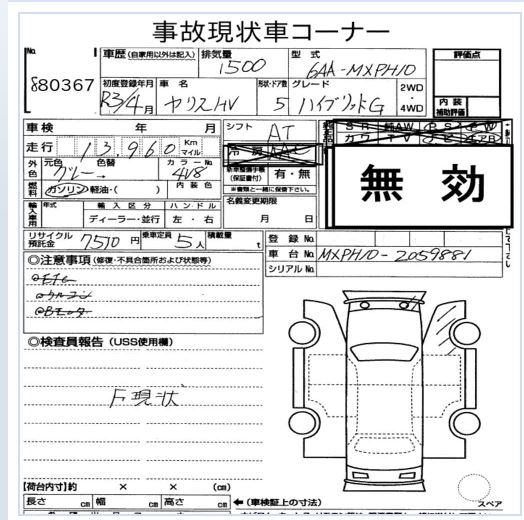 事故現状車コーナー
No.
80367
車歴 (自家用以外は記入)
排気量
1500
型式
6AA-MXPH10
評価点
初度登録年月
R3/4月
車名
ヤリスHV
形状・ドア数
5
グレード
ハイブリッドG
2WD
4WD
内装
補助評価
車検 年 月
シフト
AT
走行 13960 Km マイル
冷房 AAC
外色
元色
グレー
色替
カラーNo.
4V8
燃料
ガソリン・軽油・( )
内装色
新車整備手帳
(保証書付)
有・無
※書類と一緒に保管下さい。
無効
輸入車用
年式
輸入区分
ハンドル
ディーラー・並行
左・右
名義変更期限
月 日
リサイクル
預託金
7510円
乗車定員
5人
積載量
t
登録No.
車台No.
MXPH10-2059881
シリアルNo.
◎注意事項 (修復・不具合箇所および状態等)
◎検査員報告 (USS使用欄)
F現状
【荷台内寸】約 × × (cm)
長さ cm 幅 cm 高さ cm
←(車検証上の寸法)
スペア